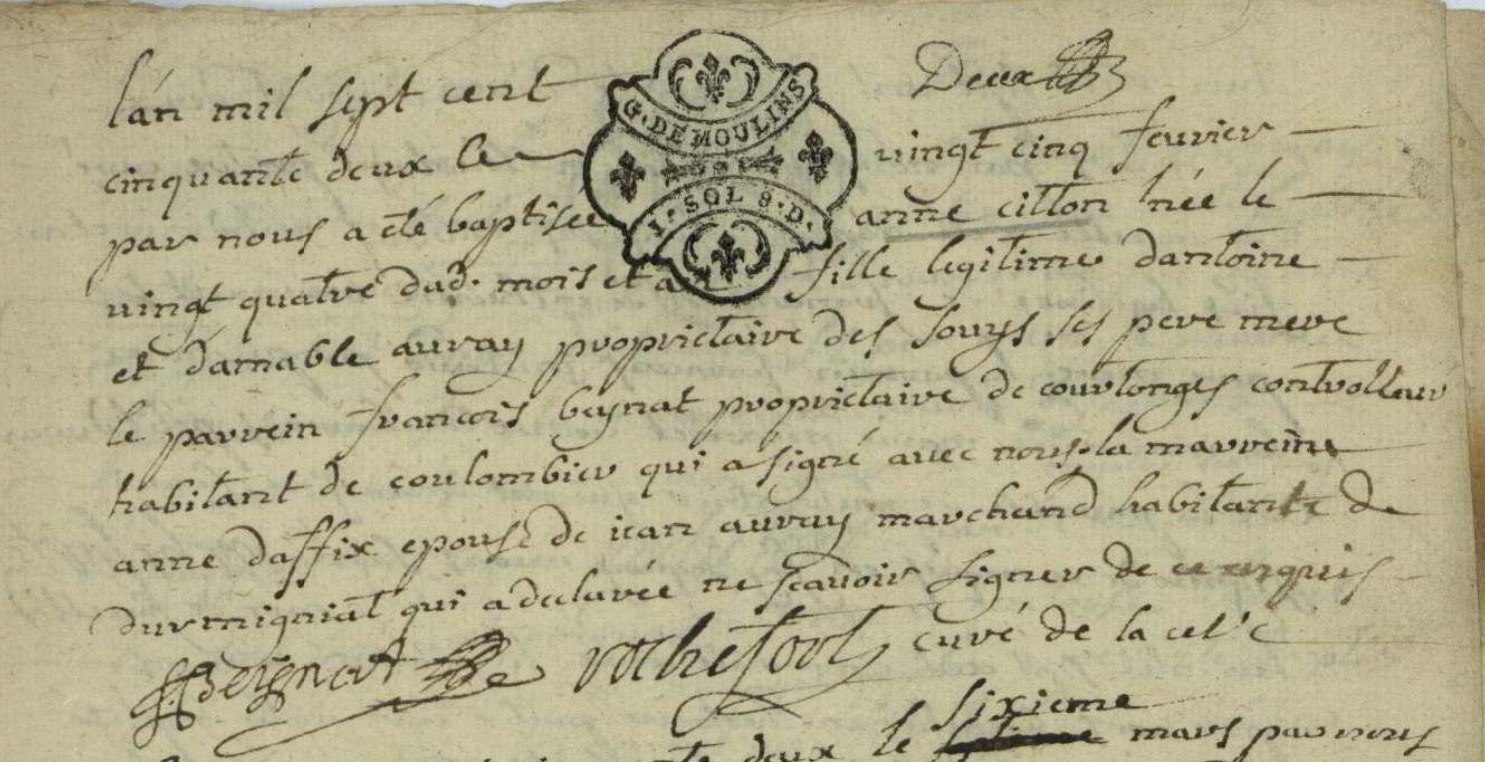 Deux
G. DE MOULINS
1. SOL 8. D.
lán mil sept cent
cinquante deux le vingt cinq feurier
par nous a eté baptisée anne citton née le
vingt quatre dud. mois et an fille legitime dantoine
et damable auray proprietaire des souys ses pere mere
le parrein francois beynat proprietaire de courtonges controlleur
habitant de coulombier qui a signé auec nous la marreine
anne daffix epouse de iean auray marchand habitante de
durmigniat qui a declarée ne scauoir signer de ce requis
Beignat rochefort curé de la cel'e
sixieme
deux le mars par nous